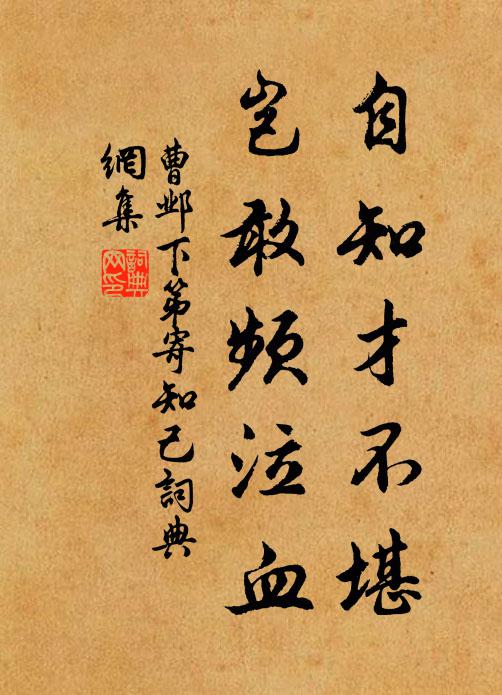 自知才不堪
岂敢频泣血
曹邺下第寄知己詞典
網集
詞典
网印